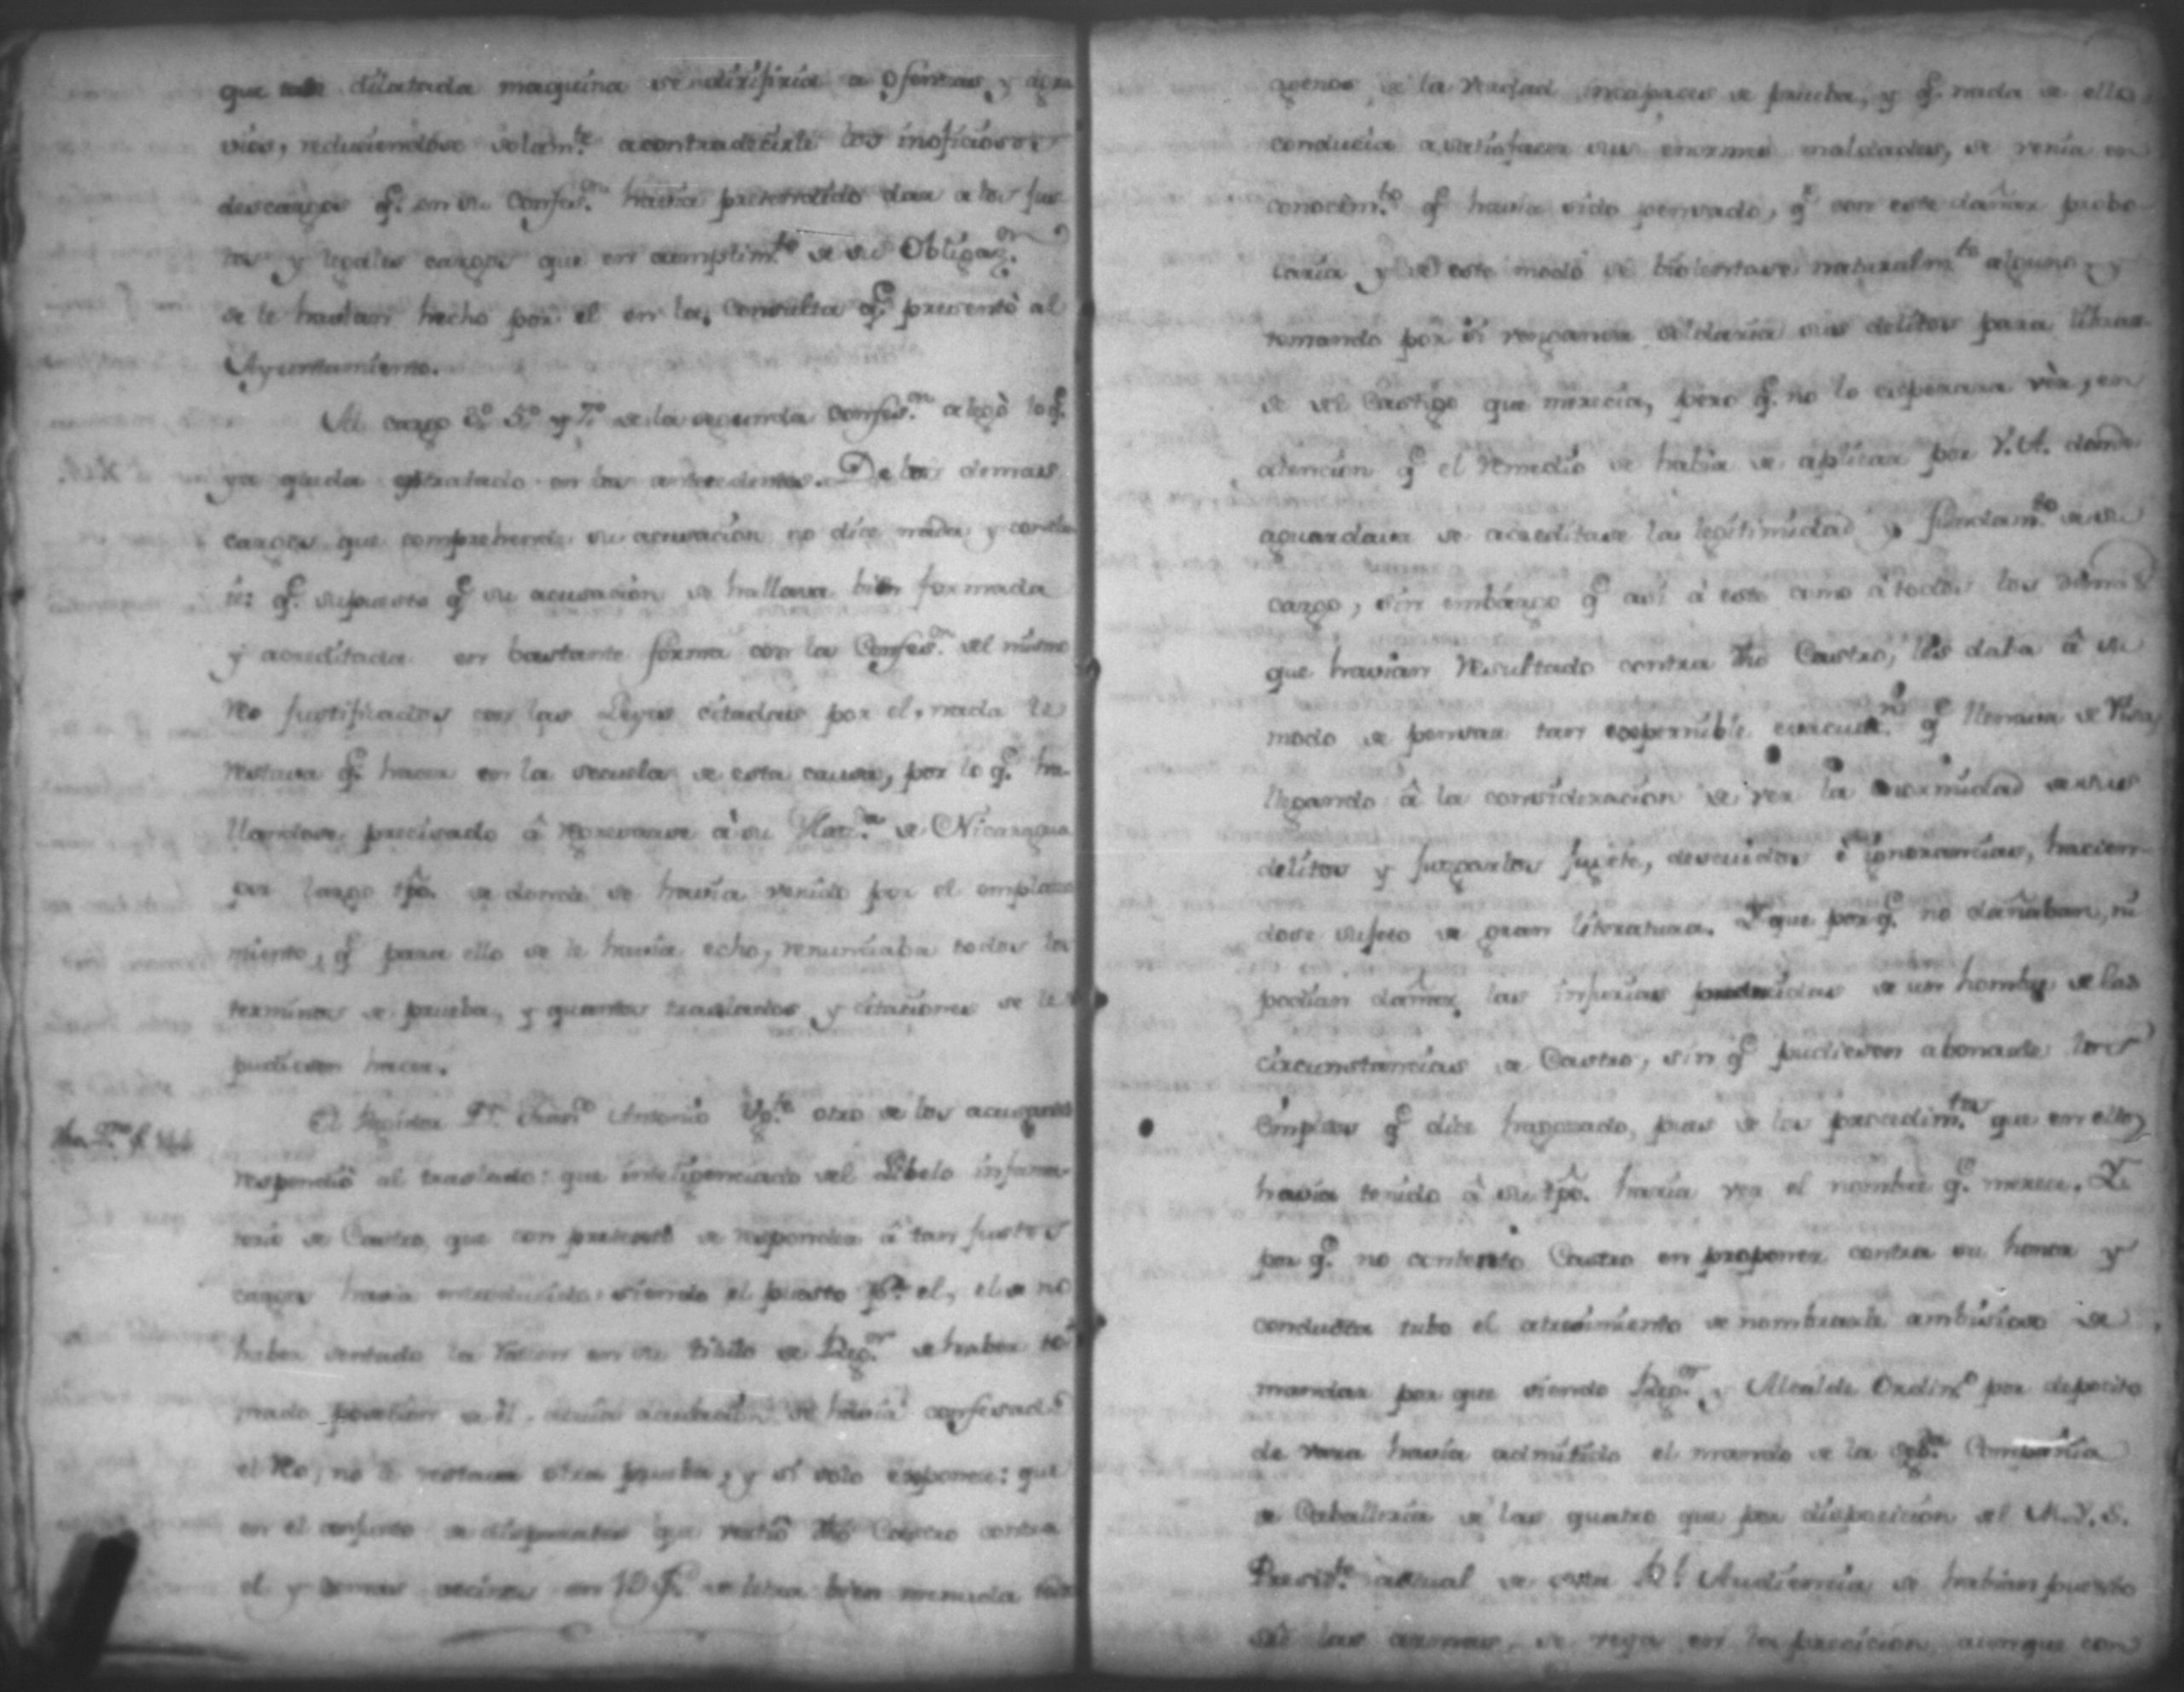 que dilatada maquina se dirijiria a ofensas, y agra
vios, reduciendose solam.te a contradecirle los inoficiosos
descargos q.e en su Confes.on havia pretendido dar a los jus
tos y legales cargos que en cumplim.to de su Obligaz.on
se le havian hecho por el en la Consulta q.e presentò al
Ayuntamiento.
Al cargo 5.o y 7.o de la segunda Confes.on alegò lo q.e
ya queda extratado en los antecedentes. De los demas
cargos que comprehende su acusacion no dice nada y conclu
ie: q.e supuesto q.e su acusacion se hallava bien formada
y acreditada en bastante forma con la Confes.on del mismo
Reo justificados con las Leyes citadas por el, nada le
restava q.e hacer en la secuela de esta causa, por lo q.e ha
llandose precisado â regresarse à su Haz.da de Nicaragua
por largo tpõ. de donde se havia venido por el emplaza
miento, q.e para ello se le havia echo, renunciaba todos los
terminos de prueba, y quantos traslados y citaciones se le
pudiesen hacer.
El Regidor D.n Antonio otro de los acusantes
respondiò al traslado: que inteligenciado del Libelo infama
torio de Castro que con pretexto de responder â tan justos
cargos havia introducido: siendo el puesto p.r el, el de no
haber sentado la razon en su titulo de Reg.or de haber to
mado posesion de èl, cuia se havia confesado
el Reo, no le restava otra prueba, y si solo exponer: que
en el conjunto de disparates que vertiò dhõ Castro contra
el y demas vecinos en 10 f.s de letra bien menuda
agenos de la Verdad incapaces de prueba, y q.e nada de ello
conducia a satisfacer sus enormes maldades, se venia en
conocim.to q.e havia sido pensado, q.e con este dañar probo
caria, y de este modo se biolentase naturalm.te alguno, y
tomando por si venganza saldaria sus delitos para librar
se del Castigo que merecia, pero q.e no lo esperara vèr, en
atencion q.e el remedio se habia de aplicar por V.A. donde
aguardava se acreditase la legitimidad y fundam.to de su
cargo, sin embargo q.e asi â este como â todos los demas
que havian resultado contra dhõ Castro, les daba â su
modo de pensar tan q.e llenava de risa,
llegando â la consideracion de ver la enormidad de sus
delitos y juzgarlos descuidos è ignorancias, hacien
dose sujeto de gran literatura. Y que por q.e no dañaban, ni
podian dañar, las injurias de un hombre de las
circunstancias de Castro, sin q.e pudiesen abonarle los
Empleos q.e dice pues de los procedim.tos que en ellos
havia tenido â su tpõ. haria ver el nombre q.e merece. Y
por q.e no contento Castro en proponer contra su honor y
conducta tubo el atrevimiento de nombrarle ambicioso de
mandar por que siendo Reg.or y Alcalde Ordin.o por deposito
de vara havia admitido el mando de la Compañia
de Caballeria de las quatro que por disposicion del M.Y.S.
Presid.te actual de esta R.l Audiencia se habian puesto
sobre las armas, se veya en la precicion, aunque con